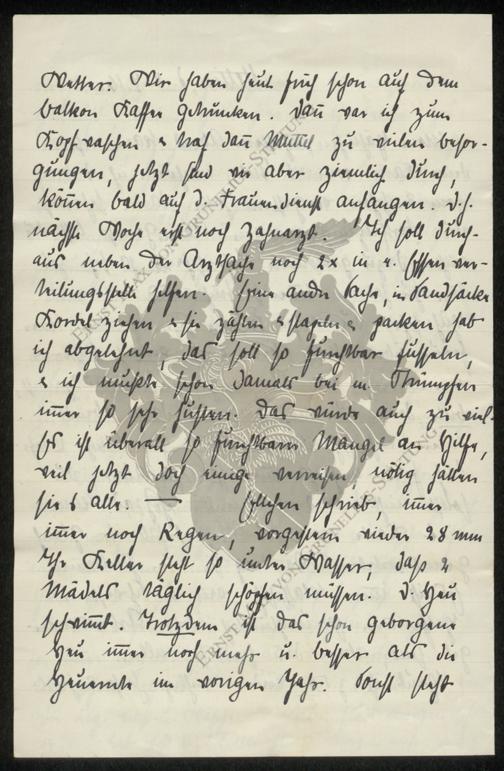 Wetter. Wir haben heut früh schon auf dem
balkon Kaffee getrunken. Dan̄ war ich zum
Kopfwaschen u. hatt dan̄ Muttel zu vielen besor-
gungen, jetzt sind wir aber ziemlich durch,
kön̄en bald auf d. Frauendienst anfangen. D.h.
nächste Woche erst noch Zahnarzt. Ich soll durch-
aus neben der Arztsache noch 2x in e. Essen ver-
teilungsstelle helfen. Eine andre Sache, in Sandsäcke
Kordel ziehen u sie zählen u stapeln u packen hab
ich abgelehnt, das soll so furchtbar fusseln,
u ich mußte schon damals bei m. Strümpfen
im̄er so sehr husten. Das würde auch zu viel.
Es ist überall so furchtbarer Mangel an Hilfe,
weil jetzt doch einige verreisen, nötig hätten
sie s alle. — schrieb, im̄er
im̄er noch Regen, vorgestern wieder 28 mm
Ihr Keller steht so unter Wasser, daß 2
Mädels täglich schöpfen müssen. D. Heu
schwim̄t. Trotzdem ist das schon geborgene
Heu im̄er noch mehr u. besser als die
Heuernte im vorigen Jahr. Sonst steht
ERNST VON GRUNDHERR-STIFTUNG
ERNST VON GRUNDHERR-STIFTUNG